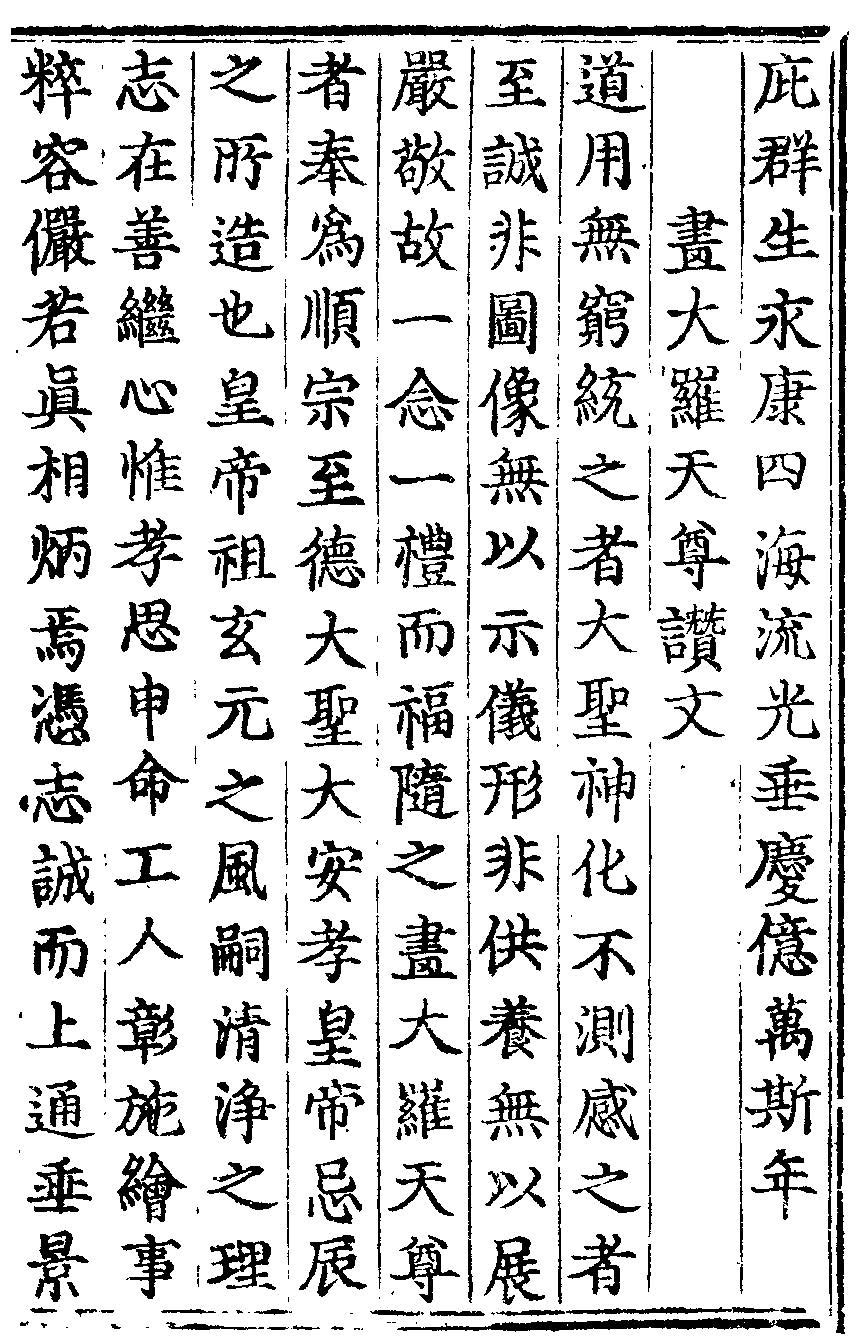 庇群生永康四海流光垂慶億萬斯年
畫大羅天尊讚文
道用無窮統之者大聖神化不測感之者
至誠非圖像無以示儀形非供養無以展
嚴敬故一念一禮而福隨之畫大羅天尊
者奉爲順宗至德大聖大安孝皇帝忌辰
之所造也皇帝祖玄元之風嗣清淨之理
志在善繼心惟孝思申命工人彰施繪事
粹容儼若眞相炳焉憑志誠而上通垂景